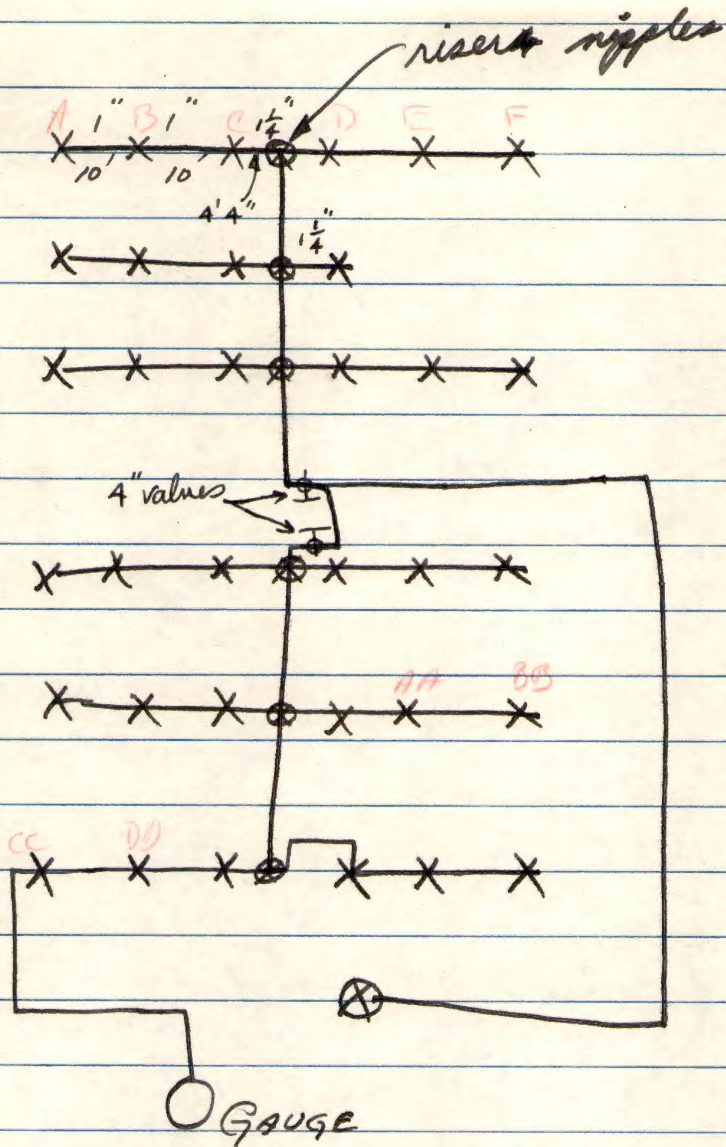 riser nipples
A 1" B 1" C 1¼" D E F
10' 10'
4'4"
1¼"
4" valves
AA BB
CC DD
GAUGE